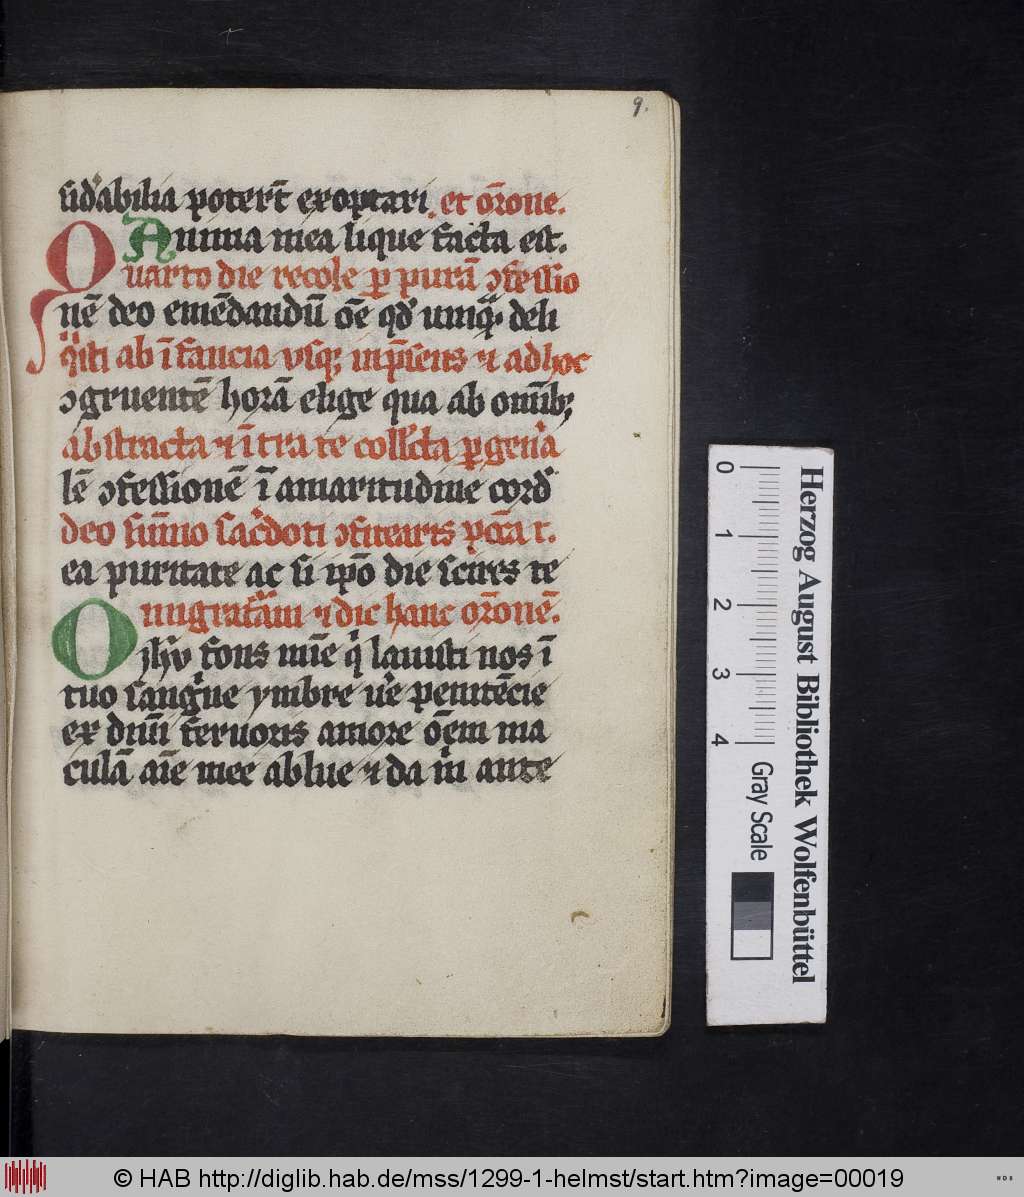 9.
sid'abilia poterit exoptari. et or̄one.
Anima mea lique facta est.
Quarto die recole ꝑ purā ↄfessio
nē deo emēdandū oē qd' umqᷓ; deli
qͥsti ab īfancia vsqꝫ inp̄sens ⁊ ad hoc
ↄgruentē horā elige qua ab om̄ibꝫ
abstracta ⁊ ītra te coll'cta ꝑ gen'a
lē ↄfessionē ī amaritudine cord'
deo sūmo sac'doti ↄfitearis pctā t.
ea puritate ac si ip̄o die scires te
migraturam ⁊ dic hanc or̄onē.
O ihū fons mie qͥ lauisti nos ī
tuo sangͥne ymbre v'e penitēcie
ex diuī feruoris amore ōem ma
culā aīe mee ablue ⁊ da mͥ ante
0 1 2 3 4
Gray Scale
Herzog August Bibliothek Wolfenbüttel
© HAB http://diglib.hab.de/mss/1299-1-helmst/start.htm?image=00019